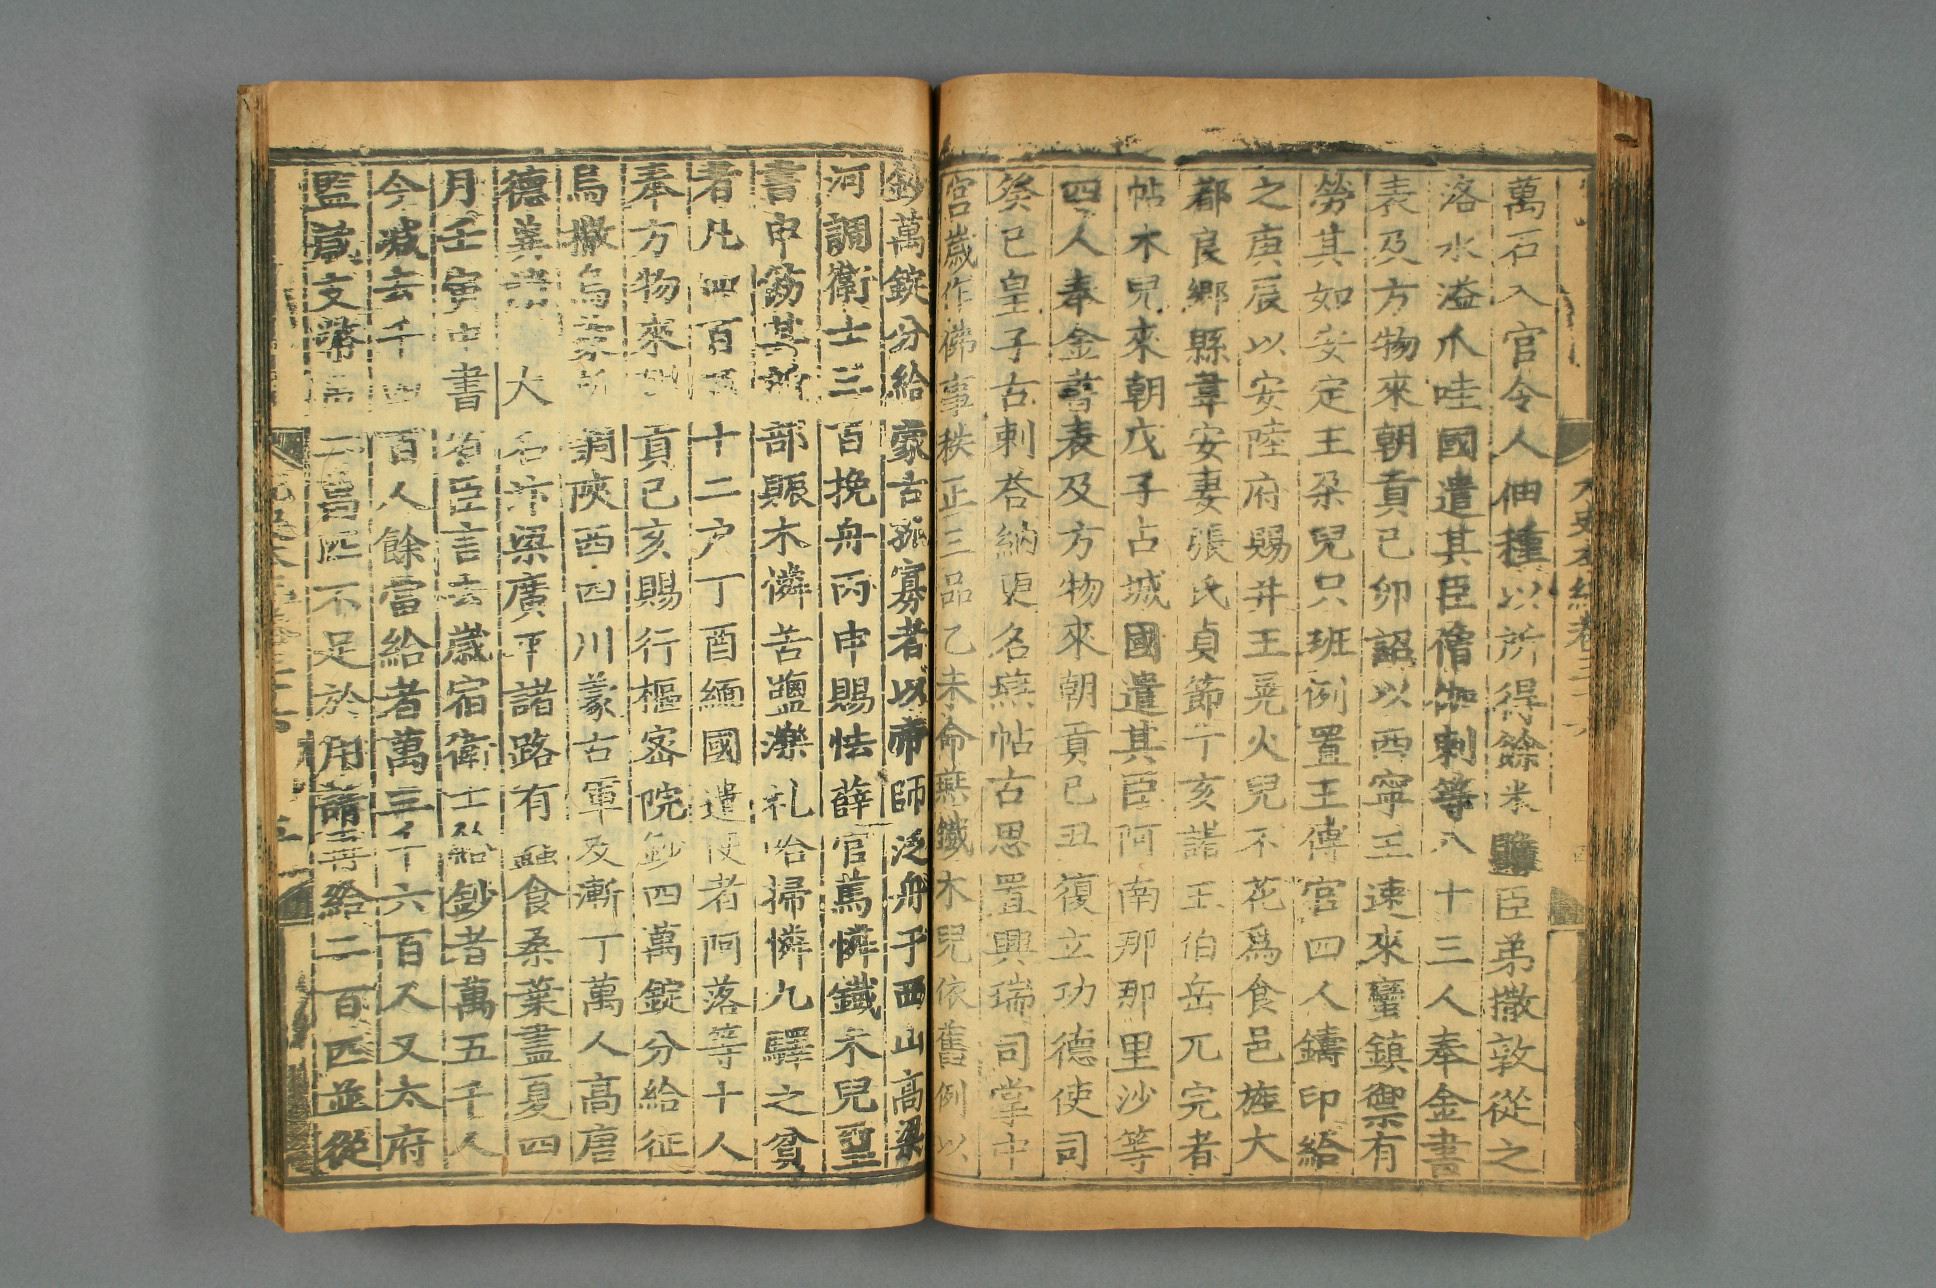 萬石入官令人佃種以所得餘米贍臣弟撒敦從之
洛水溢爪哇國遣其臣僧伽剌等八十三人奉金書
表及方物來朝貢己卯詔以西寧王速來蠻鎮禦有
勞其如安定王朶兒只班例置王傅官四人鑄印給
之庚辰以安陸府賜并王晃火兒不花爲食邑旌大
都良鄉縣韋安妻張氏貞節丁亥諸王伯岳兀完者
帖木兒來朝戊子占城國遣其臣阿南那那里沙等
四人奉金書表及方物來朝貢己丑復立功德使司
癸巳皇子古剌荅納更名燕帖古思置興瑞司掌中
宮歲作佛事秩正三品乙未命燕鐵木兒依舊例以
鈔萬錠分給蒙古孤寡者以帝師泛舟于西山高梁
河調衛士三百挽舟丙申賜怯薛官篤憐鐵木兒璽
書申飭其所部賑木憐苦鹽濼札哈掃憐九驛之貧
者凡四百五十二戶丁酉緬國遣使者阿落等十人
奉方物來朝貢己亥賜行樞密院鈔四萬錠分給征
烏撒烏蒙所調陝西四川蒙古軍及漸丁萬人高唐
德冀諸 大名汴梁廣平諸路有蟲食桑葉盡夏四
月壬寅中書省臣言去歲宿衛士給鈔者萬五千人
今減去千四百人餘當給者萬三千六百人又太府
監歲支幣 二萬匹不足於用請 等給二百匹並從